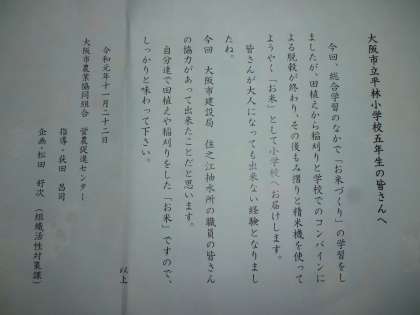 大阪市立平林小学校五年生の皆さんへ
今回、総合学習のなかで「お米づくり」の学習をし
ましたが、田植えから稲刈りと学校でのコンバインに
よる脱穀が終わり、その後もみ摺りと精米機を使って
ようやく「お米」として小学校へお届けします。
皆さんが大人になっても出来ない経験となりまし
たね。
今回 大阪市建設局 住之江抽水所の職員の皆さん
の協力があって出来たことだと思います。
自分達で田植えや稲刈りをした「お米」ですので、
しっかりと味わって下さい。
以上
令和元年十一月二十二日
大阪市農業協同組合 営農促進センター
指導・荻田 昌司
企画・松田 好次(組織活性対策課)